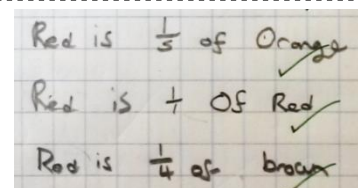 Red is 1/5 of Orange
Red is 1/1 Of Red
Red is 1/4 of brown